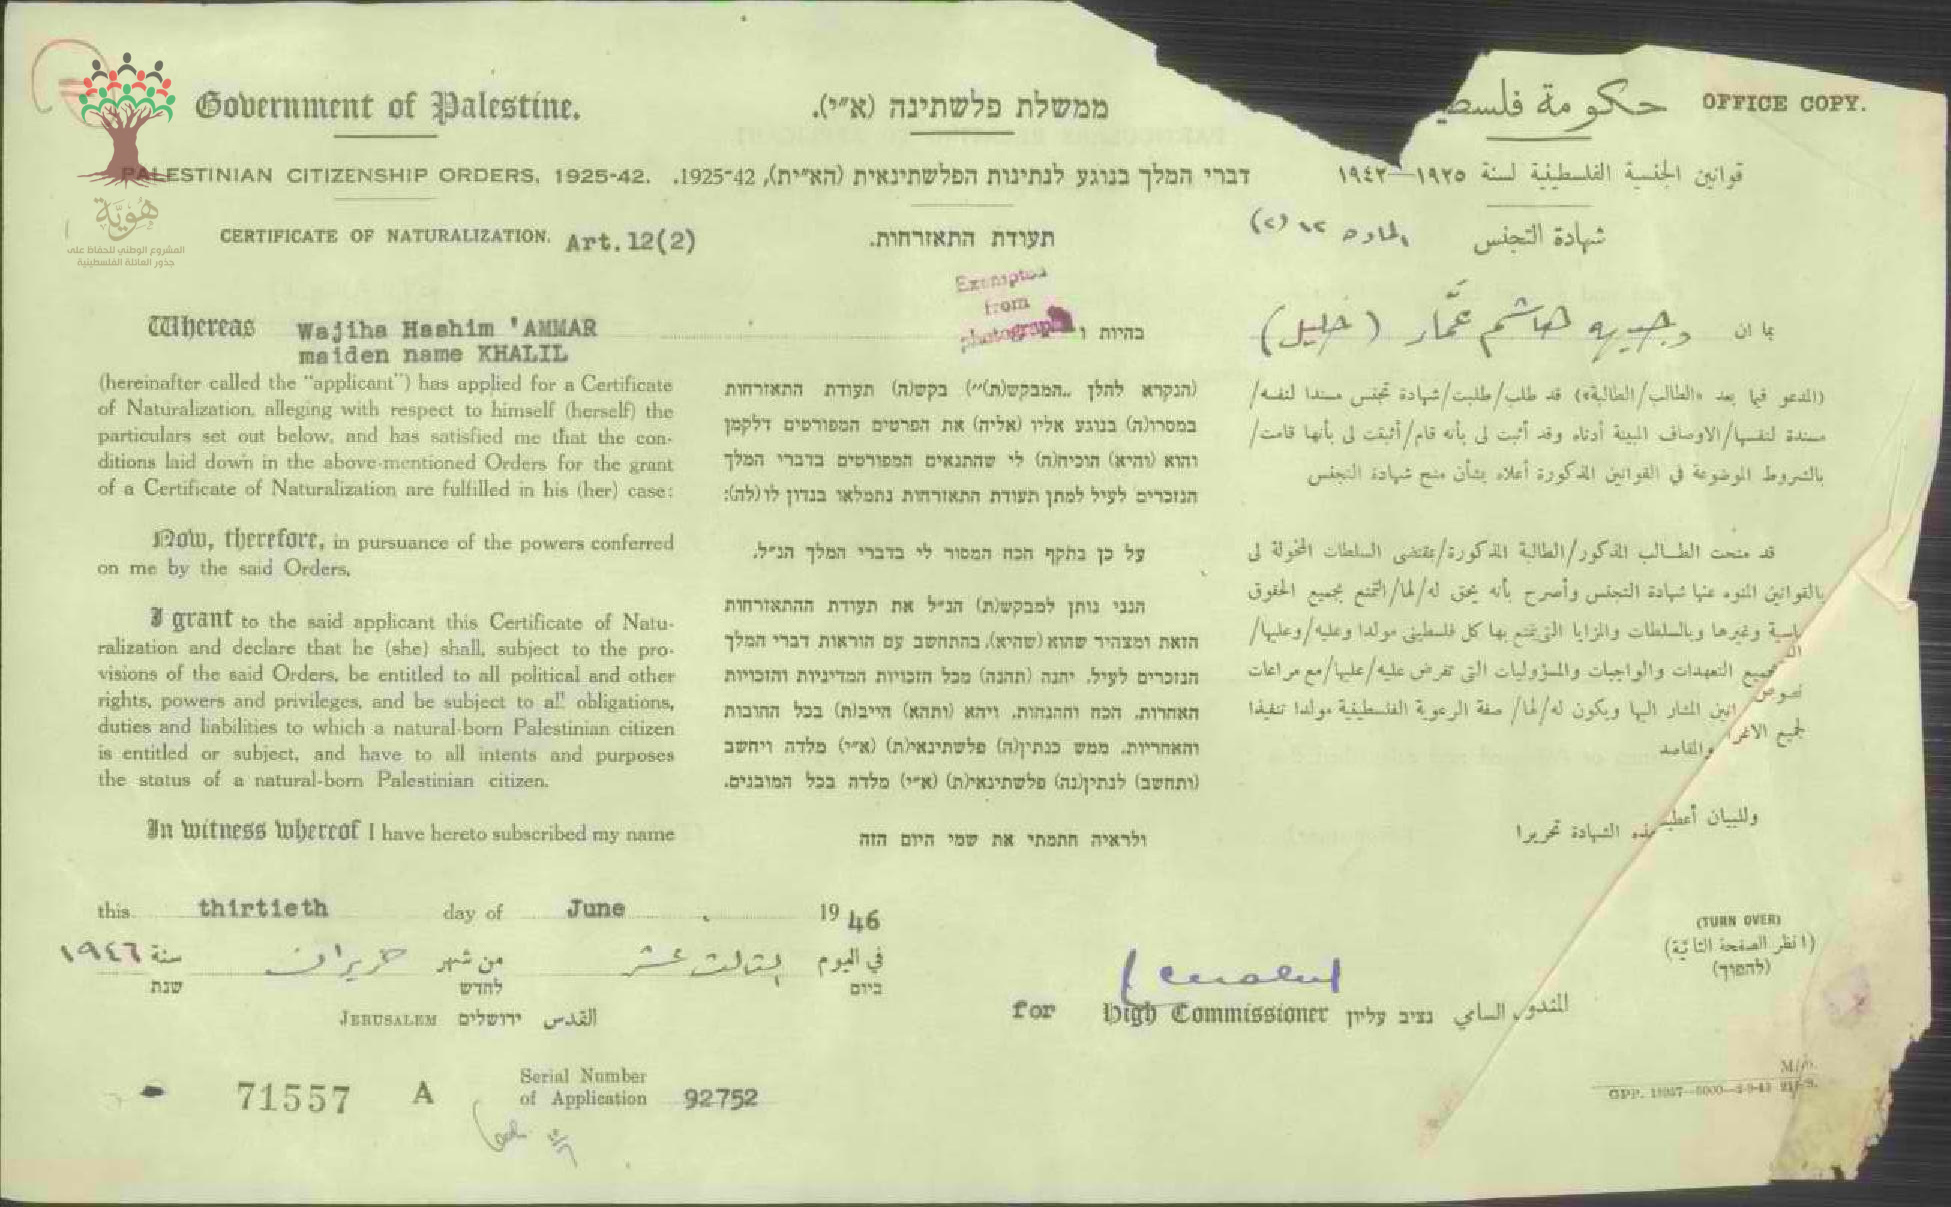 Government of Palestine.
ממשלת פלשתינה (א״י).
حكومة
OFFICE COPY.
PALESTINIAN CITIZENSHIP ORDERS, 1925-42.
דברי המלך בנוגע לנתינות הפלשתינאית (הא״ית), 1925-42.
قوانين الجنسية الفلسطينية لسنة ١٩٢٥-١٩٤٢
هُوِيَّة
المشروع الوطني للحفاظ على
جذور العائلة الفلسطينية
CERTIFICATE OF NATURALIZATION. Art.12(2)
תעודת התאזרחות.
شهادة التجنس المادة ١٢ (٢)
Exempted
from
photograph
Whereas Wajiha Hashim 'AMMAR
maiden name KHALIL
(hereinafter called the "applicant") has applied for a Certificate
of Naturalization, alleging with respect to himself (herself) the
particulars set out below, and has satisfied me that the con-
ditions laid down in the above-mentioned Orders for the grant
of a Certificate of Naturalization are fulfilled in his (her) case:
Now, therefore, in pursuance of the powers conferred
on me by the said Orders,
I grant to the said applicant this Certificate of Natu-
ralization and declare that he (she) shall, subject to the pro-
visions of the said Orders, be entitled to all political and other
rights, powers and privileges, and be subject to all obligations,
duties and liabilities to which a natural-born Palestinian citizen
is entitled or subject, and have to all intents and purposes
the status of a natural-born Palestinian citizen.
In witness whereof I have hereto subscribed my name
בהיות ו
(הנקרא להלן „המבקש(ת)״) בקש(ה) תעודת התאזרחות
במסרו(ה) בנוגע אליו (אליה) את הפרטים המפורטים דלקמן
והוא (והיא) הוכיח(ה) לי שהתנאים המפורטים בדברי המלך
הנזכרים לעיל למתן תעודת התאזרחות נתמלאו בנדון לו (לה):
על כן בתקף הכח המסור לי בדברי המלך הנ״ל.
הנני נותן למבקש(ת) הנ״ל את תעודת ההתאזרחות
הזאת ומצהיר שהוא (שהיא), בהתחשב עם הוראות דברי המלך
הנזכרים לעיל, יהנה (תהנה) מכל הזכויות המדיניות והזכויות
האחרות, הכח וההנחות, ויהא (ותהא) חייב(ת) בכל החובות
והאחריות, ממש כנתין(ה) פלשתינאי(ת) (א״י) מלדה ויחשב
(ותחשב) לנתין(נה) פלשתינאי(ת) (א״י) מלדה בכל המובנים.
ולראיה חתמתי את שמי היום הזה
بما ان وجيهه هاشم عمَّار (خليل)
(المدعو فيما بعد «الطالب/الطالبة») قد طلب/طلبت/شهادة تجنس مسندا لنفسه/
مسندة لنفسها/الاوصاف المبينة أدناه وقد أثبت لى بأنه قام/أثبتت لى بأنها قامت/
بالشروط الموضوعة في القوانين المذكورة أعلاه بشأن منح شهادة التجنس
قد منحت الطالب المذكور/الطالبة المذكورة/بمقتضى السلطات المخولة لى
بالقوانين المنوه عنها شهادة التجنس وأصرح بأنه يحق له/لها/التمتع بجميع الحقوق
وغيرها وبالسلطات والمزايا التى يتمتع بها كل فلسطينى مولدا وعليه/وعليها/
التعهدات والواجبات والمسؤوليات التى تفرض عليه/عليها/مع مراعات
نصوص المشار اليها ويكون له/لها/ صفة الرعوية الفلسطينية مولدا تنفيذا
لجميع والمقاصد
وللبيان أعطيت هذه الشهادة تحريرا
this thirtieth day of June 1946
في اليوم الثالث عشر من شهر حزيران سنة ١٩٤٦
ביום לחדש שנת
JERUSALEM ירושלים القدس
for High Commissioner נציב עליון المندوب السامي
(TURN OVER)
(انظر الصفحة الثانية)
(להפוך)
71557 A
Serial Number
of Application 92752
GPP.